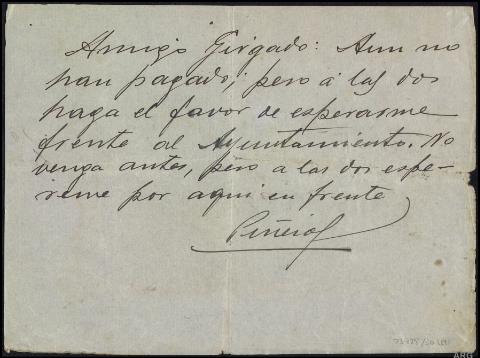 Amigo Girgado: Aun no
han pagado; pero á las dos
haga el favor de esperarme
frente al Ayuntamiento. No
venga antes, pero a las dos espe-
reme por aqui en frente
Piñeiro
ARG